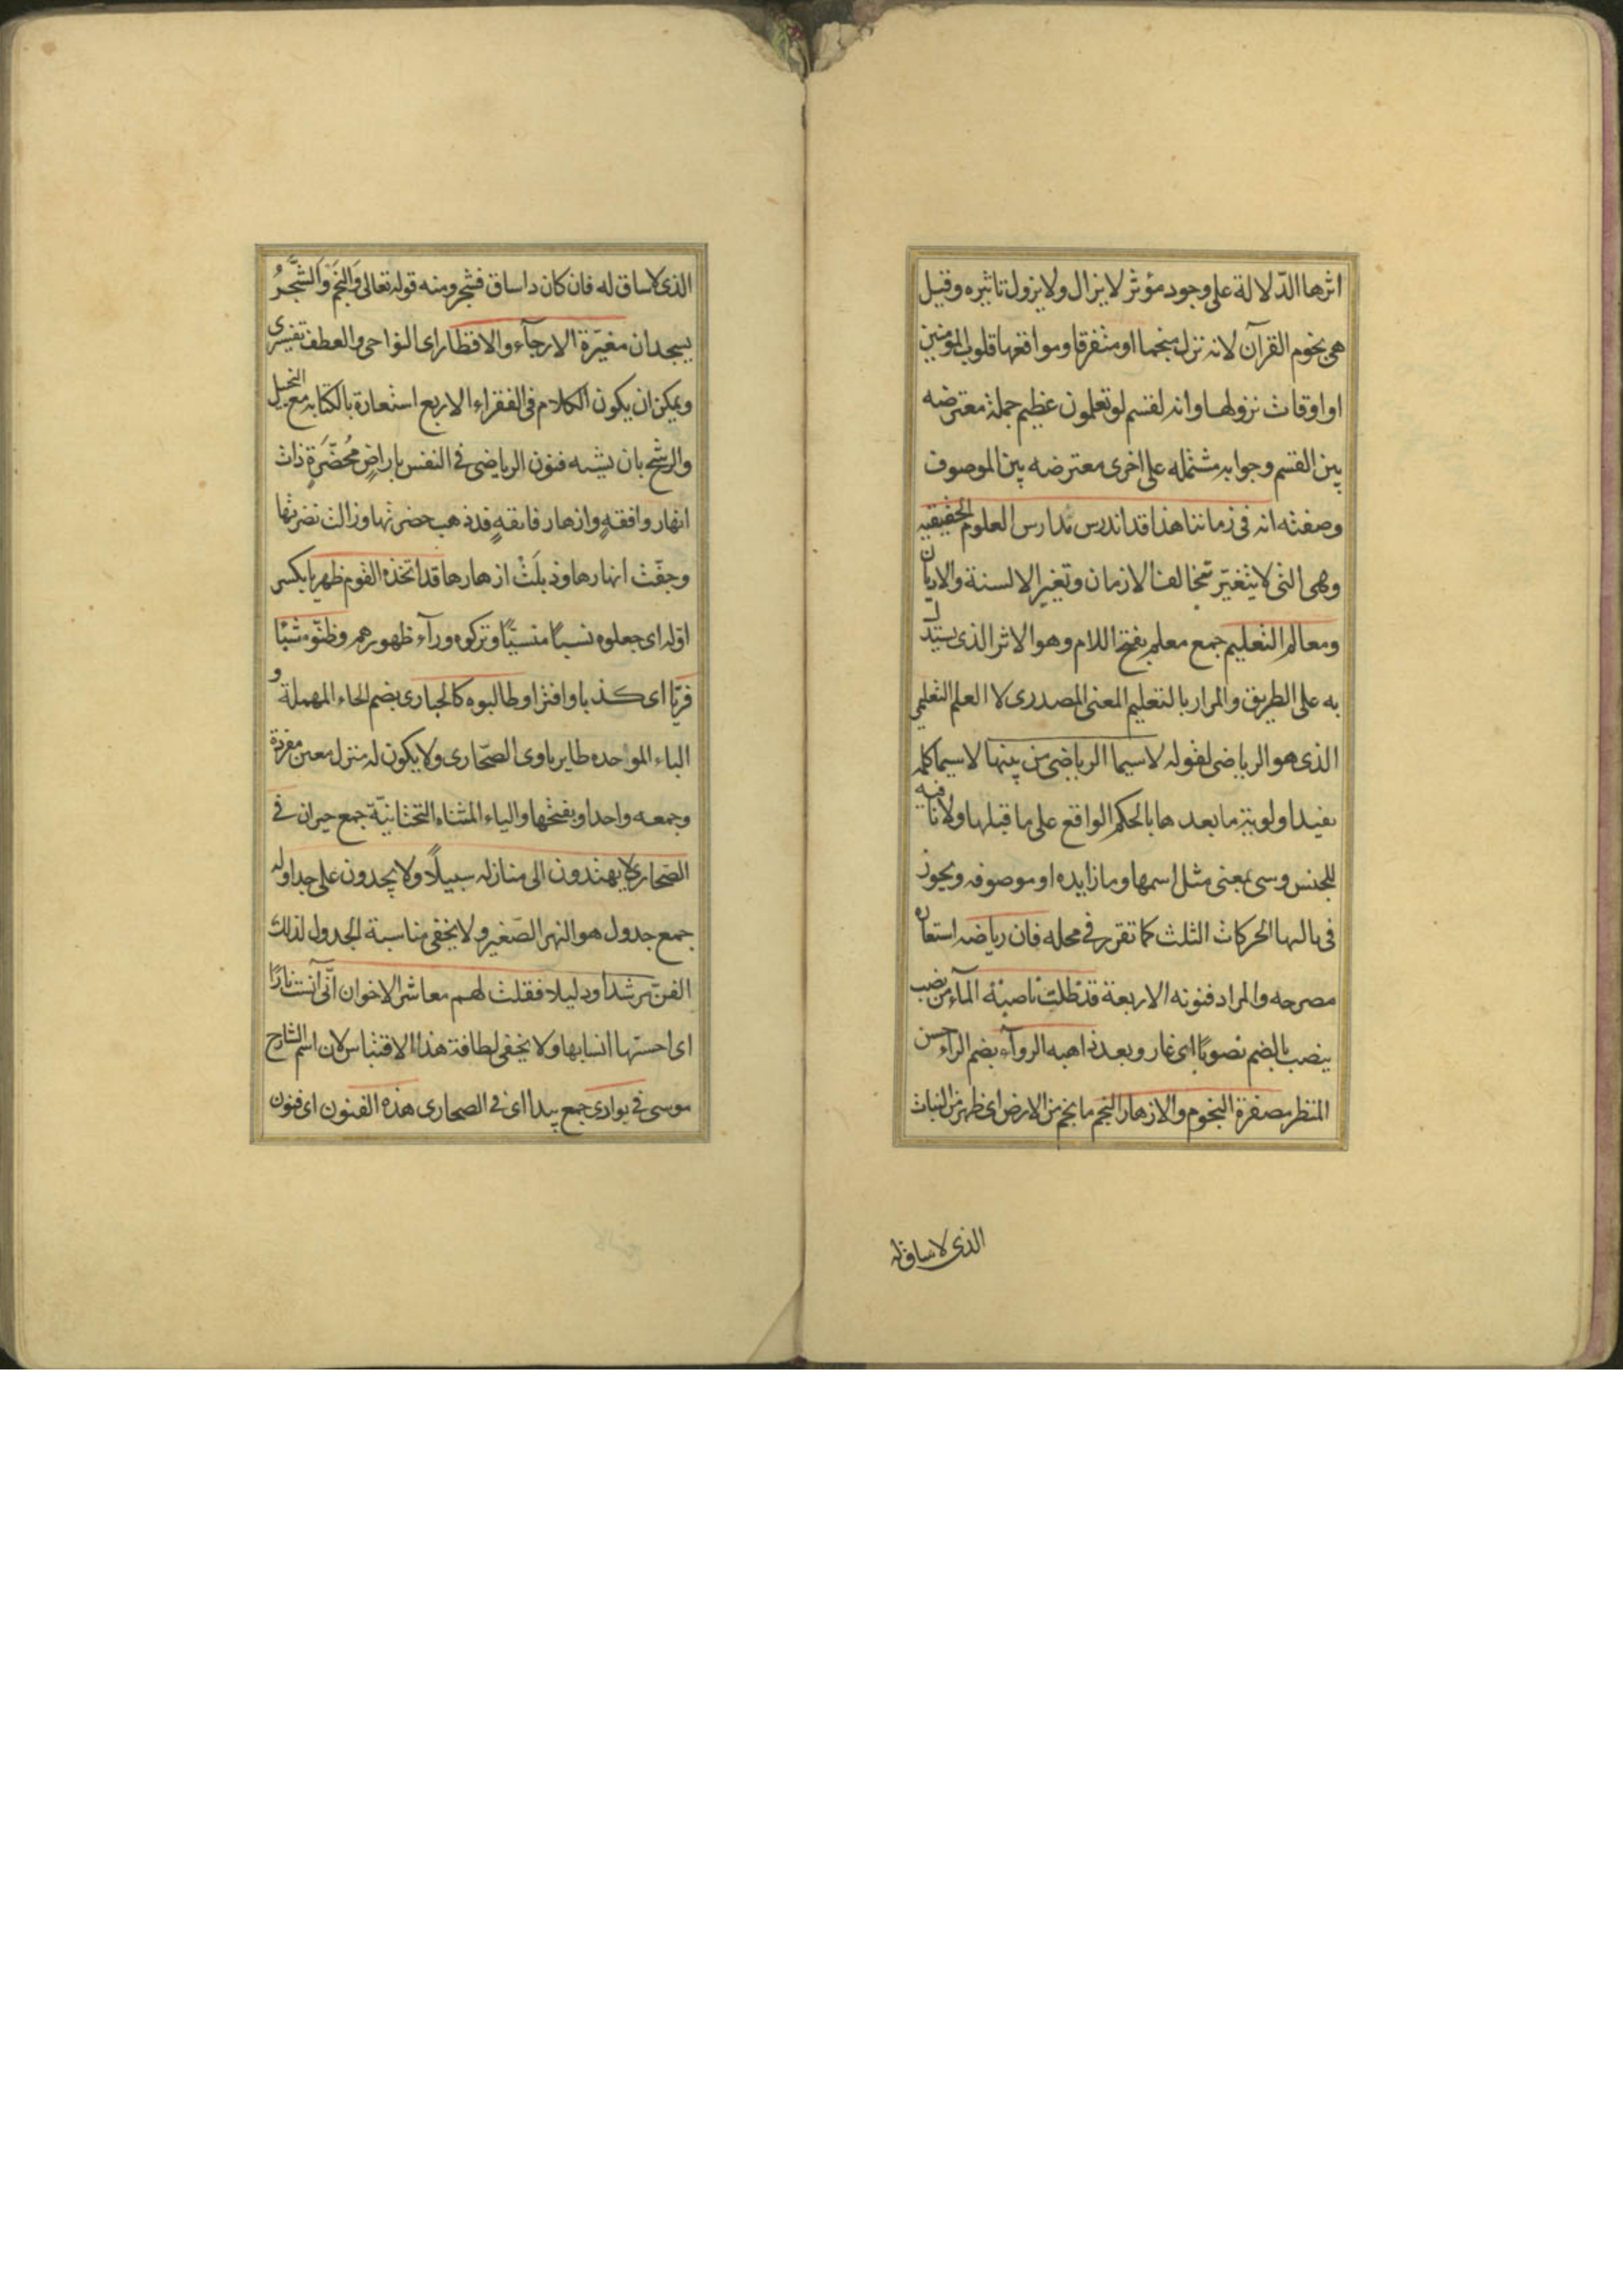 اثرها الدّلالة على وجود مؤثر لا يزال ولا يزول تاثيره وقيل
هى نجوم القرآن لانه نزل منجما او متفرقا ومواقعها قلوب المؤمنين
او اوقات نزولها وانه لقسم لو تعلمون عظيم جملة معترضه
بين القسم وجوابه مشتمله على اخرى معترضه بين الموصوف
وصفته انه فى زماننا هذا قد اندرس مدارس العلوم الحقيقيه
وهى التى لا يتغيّر بتخالف الازمان وتغير الالسنة والاديان
ومعالم التعليم جمع معلم بفتح اللام وهو الاثر الذى يستدل
به على الطريق والمراد بالتعليم المعنى المصدرى لا العلم التعليمى
الذى هو الرياضى لقوله لا سيما الرياضى من بينها لا سيما كلمه
يفيد اولويته ما بعدها بالحكم الواقع على ما قبلها ولا نافيه
للجنس وسى بمعنى مثل اسمها وما زايده او موصوفه ويجوز
فى تاليها الحركات الثلث كما تقرر فى محله فان رياضه استعاره
مصرحه والمراد فنونه الاربعة قد ظلت ناصبة الماء من نضب
ينضب بالضم نضوبًا اى غار وبعد ذاهبه الرواء بضم الراء حسن
المنظر مصفرة النجوم والازهار النجم ما نجم من الارض اى ظهر من النبات
الذى لا ساق له
الذى لا ساق له فان كان ذا ساق فشجر ومنه قوله تعالى وَالنَّجْمُ وَالشَّجَرُ
يسجدان مغبّرة الارجآء والاقطار اى النواحى والعطف تفسيرى
ويمكن ان يكون الكلام فى الفقراء الاربع استعارة بالكنايه مع التخييل
والترشيح بان يشبه فنون الرياضى فى النفس باراضٍ مُخضّرَةٍ ذات
انهار وافقهٍ وازهار فائقهٍ قد ذهب خضرتها وزالت نضرتها
وجفّت انهارها وذبلَتْ ازهارها قد اتخذه القوم ظهريا بكسر
اوله اى جعلوه نسيًا منسيًّا وتركوه ورآء ظهورهم وظنّوه شيئًا
فريّا اى كذبا وافتراء وطالبوه كالحبارى بضم الحاء المهملة و
الباء الموحده طاير ياوى الصّحارى ولا يكون له منزل معين مفرده
وجمعه واحد او بفتحها والياء المثناه التحتانيّة جمع حيران فى
الصّحارى لا يهتدون الى منازله سبيلًا ولا يجدون على جداوله
جمع جدول هو النهر الصّغير ولا يخفى مناسبة الجدول لذلك
الفنّ مرشدا ودليلا فقلت لهم معاشر الاخوان انّى آنست نارًا
اى احسستها انسا بها ولا يخفى لطافة هذا الاقتباس لان اسم الشارح
موسى فى بوادى جمع بيدا اى فى الصحارى هذه الفنون اى فنون